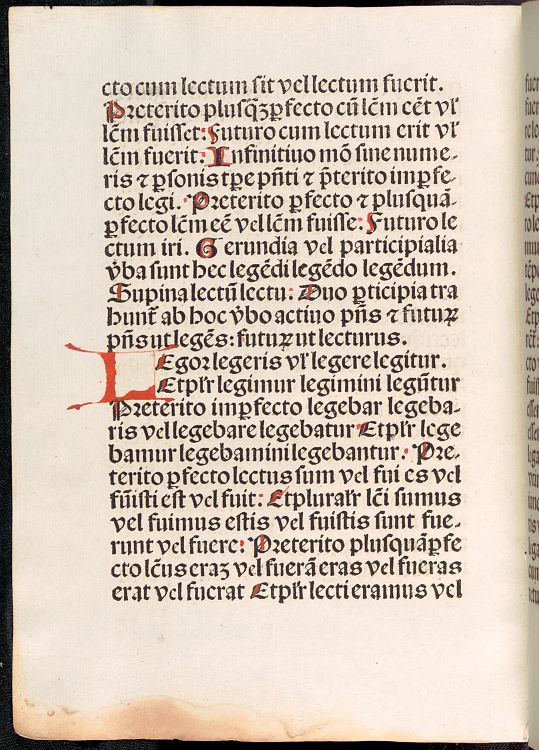 cto cum lectum sit vel lectum fuerit.
Preterito plusq̃ꝫꝑfecto cũ lẽm eẽt vl'
lẽm fuisset: Futuro cum lectum erit vl'
lẽm fuerit: Infinitiuo mõ sine nume-
ris ⁊ ꝑsonis tꝑe pñti ⁊ p̃terito imꝑfe-
cto legi. Preterito ꝑfecto ⁊ plusquã-
ꝑfecto lẽm eẽ vel lẽm fuisse: Futuro le
ctum iri. Gerundia vel participialia
v̓ba sunt hec legẽdi legẽdo legẽdum.
Supina lectũ lectu: Duo ꝑticipia tra
hunt̃ ab hoc v̓bo actiuo pñs ⁊ futurꝝ
pñs ut legẽs: futurꝝ ut lecturus.
LEgor legeris vl' legere legitur.
Et pl'r legimur legimini legũtur
Preterito imꝑfecto legebar legeba-
ris vel legebare legebatur Et pl'r lege
bamur legebamini legebantur: Pre-
terito ꝑfecto lectus sum vel fui es vel
fũisti est vel fuit: Et pluralr̃ lc̃i sumus
vel fuimus estis vel fuistis sunt fue-
runt vel fuere: Preterito plusquãꝑfe
cto lc̃us eraꝫ vel fuerã eras vel fueras
erat vel fuerat Et pl'r lecti eramus vel